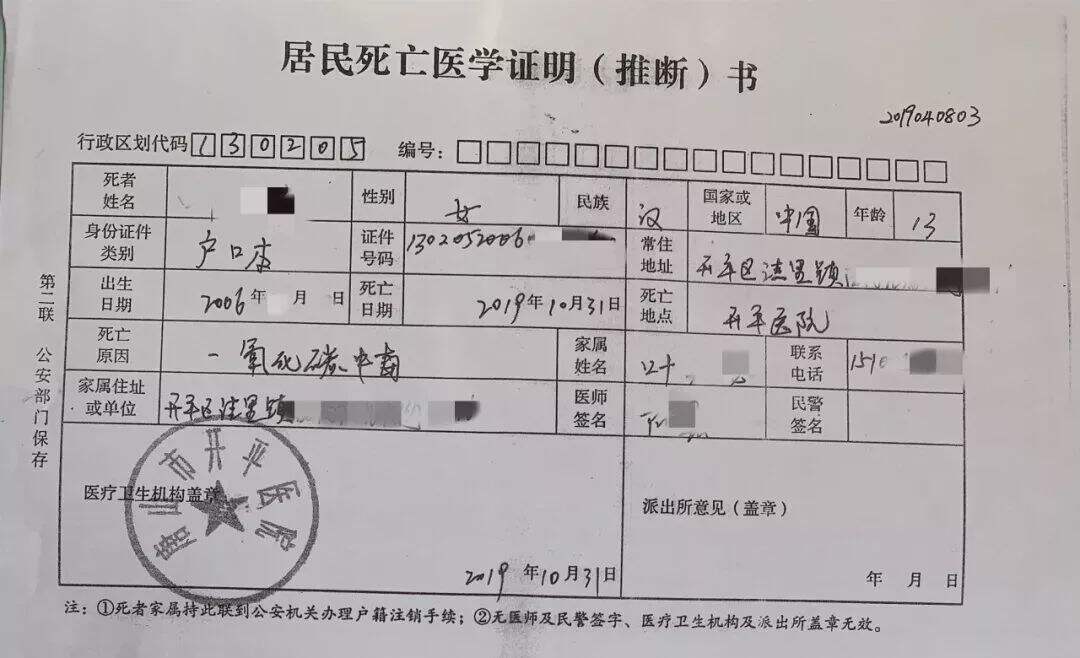 居民死亡医学证明（推断）书
2019040803
行政区划代码 130205 编号：
死者姓名 性别 女 民族 汉 国家或地区 中国 年龄 13
身份证件类别 户口本 证件号码 1302052006 常住地址 开平区洼里镇
出生日期 2006年 月 日 死亡日期 2019年10月31日 死亡地点 开平医院
死亡原因 一氧化碳中毒 家属姓名 联系电话 151
家属住址或单位 开平区洼里镇 医师签名 民警签名
医疗卫生机构盖章 派出所意见（盖章）
唐山市开平医院
2019年10月31日 年 月 日
注：①死者家属持此联到公安机关办理户籍注销手续；②无医师及民警签字、医疗卫生机构及派出所盖章无效。
第二联 公安部门保存